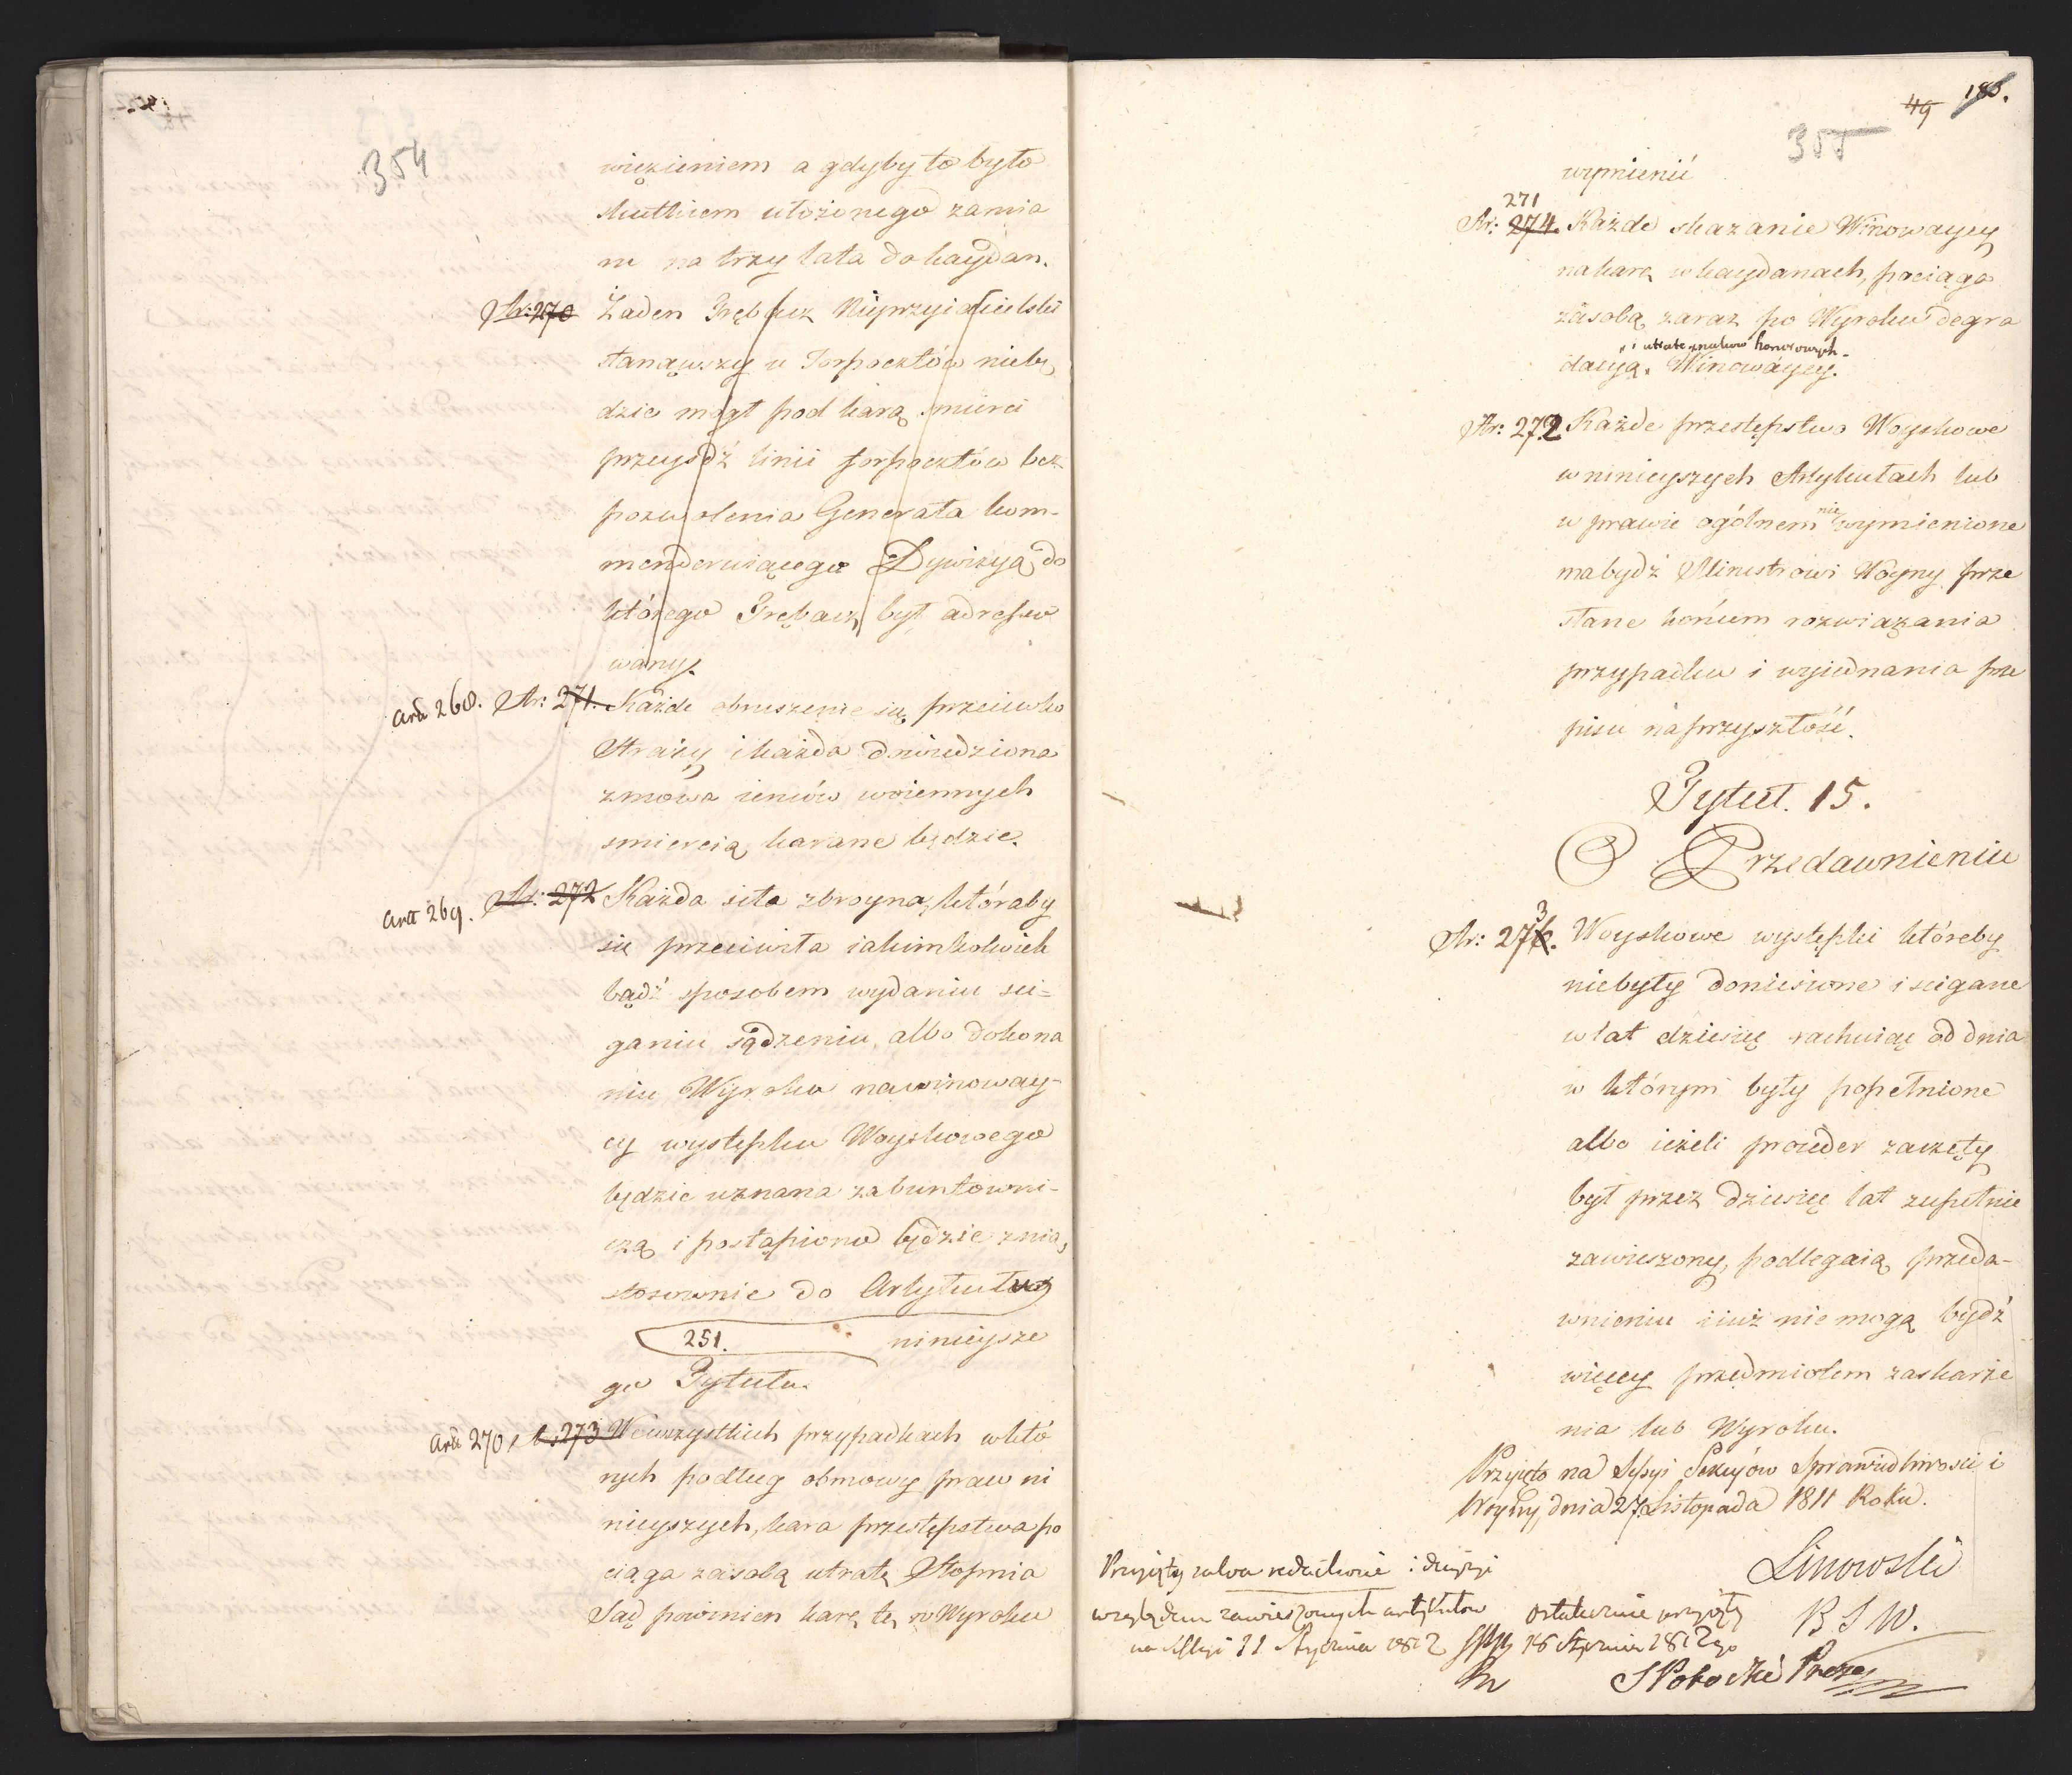 354
więzieniem a gdyby to było
skutkiem ułożonego zamia
ru na trzy lata do kaydan.
Ar: 270 Żaden Trębacz Nieprzyiacielski
stanąwszy u Forpocztów niebę
dzie mógł pod karą smierci
przeyśdź linii forpocztów bez
pozwolenia Generała kom-
menderuiącego Dywizyą do
którego Trębacz był adresso
wany.
Art 268. Ar: 271. Każde obruszenie się przeciwko
Straży i każda dowiedziona
zmowa ieńców woiennych
smiercią karane będzie.
Art 269. Ar: 272 Każda siła zbroyna, któraby
się przeciwiła iakimkolwiek
bądź sposobem wydaniu sci-
ganiu sądzeniu albo dokona
niu Wyroku na winoway-
cy występku Woyskowego
będzie uznana za buntowni-
czą i postąpiono będzie z nią,
stosownie do Artykułu
251. ninieysze
go Tytułu.
Art 270 Ar: 273 We wszystkich przypadkach w któ
rych podług obmowy praw ni
nieyszych, kara przestępstwa po
ciąga za sobą utratę Stopnia
Sąd powinien karę tę w Wyroku
49 186.
355
wymienić
271
Ar: 274. Każde skazanie Winowaycy
na karę w kaydanach, pociąga
za sobą zaraz po Wyroku degra
i utratę znaków honorowych
dacyą Winowaycy.
Ar: 272 Każde przestępstwo Woyskowe
w ninieyszych Artykułach lub
w prawie ogólnem nie wymienione
ma bydź Ministrowi Woyny prze
słane końcem rozwiązania
przypadku i wyiednania prze
pisu na przyszłość.
Tytuł. 15.
O Przedawnieniu
3
Ar: 276. Woyskowe występki któreby
niebyły doniesione i scigane
w lat dziesięć rachuiąc od dnia
w którym były popełnione
albo ieżeli proceder zaczęty
był przez dziesięć lat zupełnie
zawieszony, podlegaią przeda-
wnieniu i iuż nie mogą bydź
więcey przedmiotem zaskarże
nia lub Wyroku.
Przyięto na Sessyi Sekcyów Sprawiedliwości i
Woyny, dnia 27 Listopada 1811 Roku.
Linowski
R S W.
Przyięty salva redactione i decyzyi
względem zawieszonych artykułow
na Sessyi 11 Stycznia 1812
ostatecznie przyięty
16 Stycznia 1812go
S Potocki Prezes